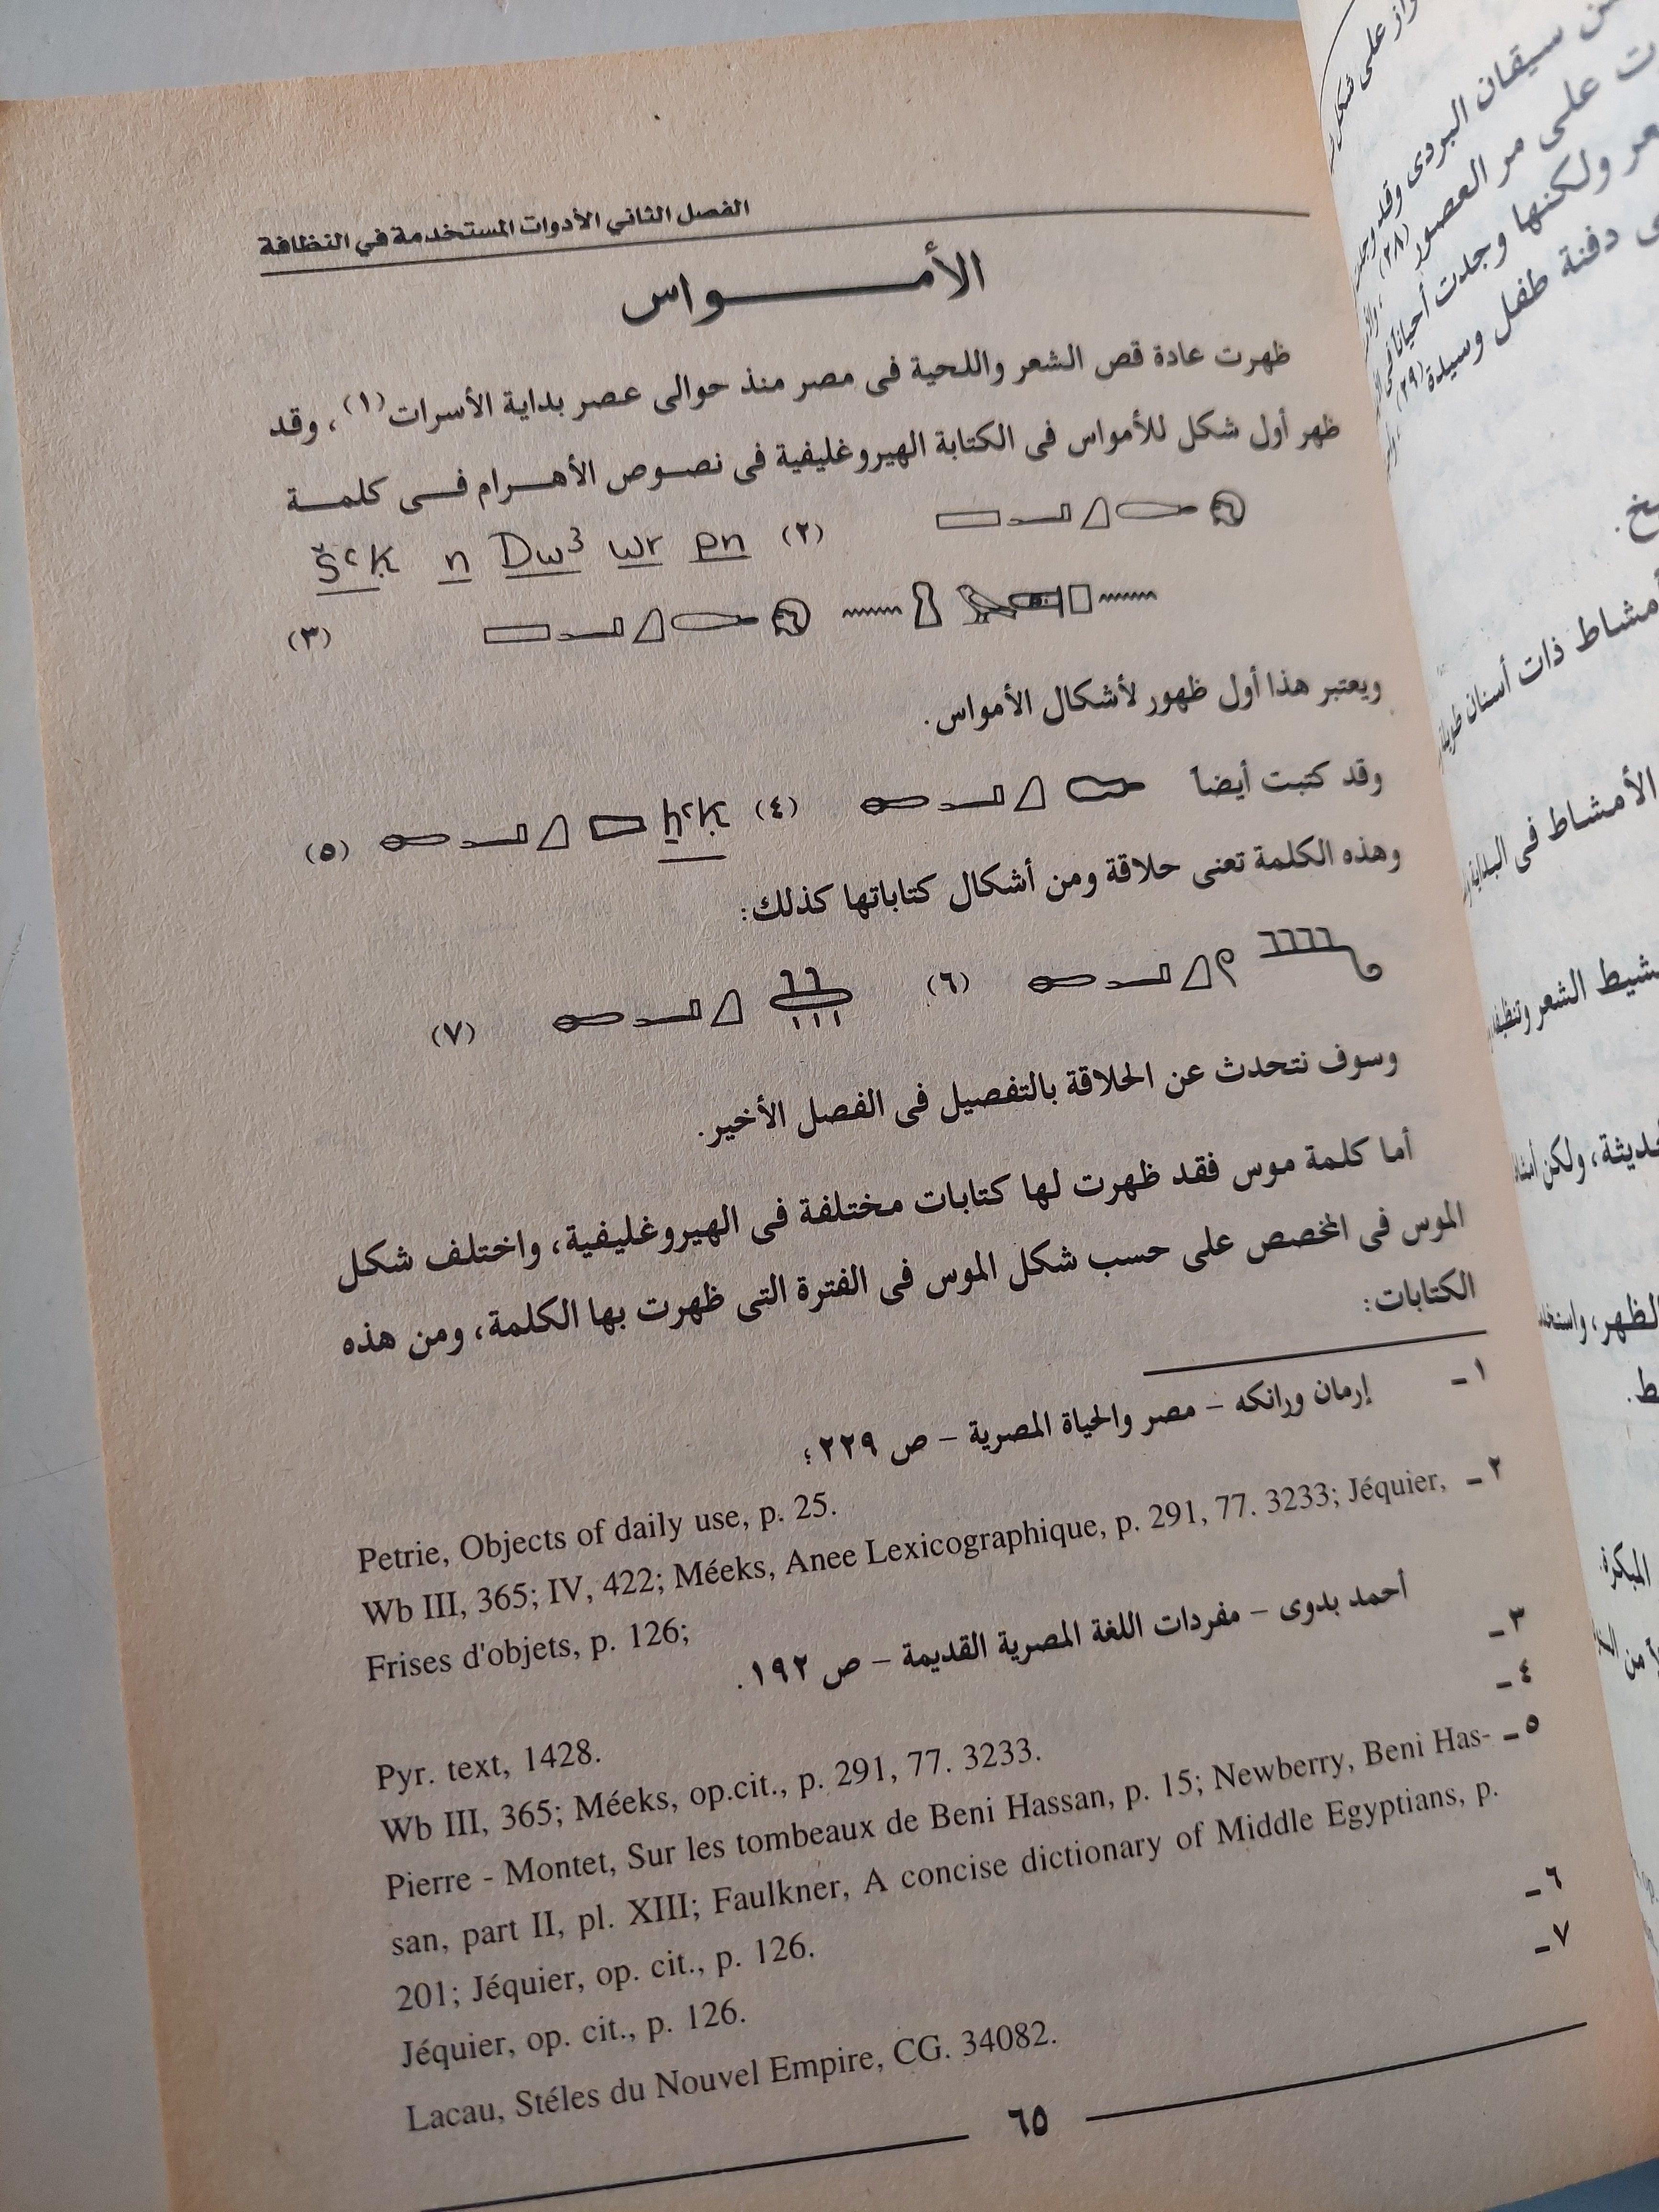 الفصل الثاني الأدوات المستخدمة في النظافة
الأمـــــــواس
ظهرت عادة قص الشعر واللحية فى مصر منذ حوالى عصر بداية الأسرات(١)، وقد
ظهر أول شكل للأمواس فى الكتابة الهيروغليفية فى نصوص الأهرام فى كلمة
šꜥḳ n Dwꜣ wr pn (٢)
(٣)
ويعتبر هذا أول ظهور لأشكال الأمواس.
وقد كتبت أيضاً (٤) ẖꜥḳ (٥)
وهذه الكلمة تعنى حلاقة ومن أشكال كتاباتها كذلك:
(٦) (٧)
وسوف نتحدث عن الحلاقة بالتفصيل فى الفصل الأخير.
أما كلمة موس فقد ظهرت لها كتابات مختلفة فى الهيروغليفية، واختلف شكل
الموس فى المخصص على حسب شكل الموس فى الفترة التى ظهرت بها الكلمة، ومن هذه
الكتابات:
١ـ إرمان ورانكه – مصر والحياة المصرية – ص ٢٢٩؛
Petrie, Objects of daily use, p. 25.
٢ـ Wb III, 365; IV, 422; Méeks, Anee Lexicographique, p. 291, 77. 3233; Jéquier,
Frises d'objets, p. 126;
أحمد بدوى – مفردات اللغة المصرية القديمة – ص ١٩٢.
٣ـ Pyr. text, 1428.
٤ـ Wb III, 365; Méeks, op.cit., p. 291, 77. 3233.
٥ـ Pierre - Montet, Sur les tombeaux de Beni Hassan, p. 15; Newberry, Beni Has-
san, part II, pl. XIII; Faulkner, A concise dictionary of Middle Egyptians, p.
201; Jéquier, op. cit., p. 126.
٦ـ Jéquier, op. cit., p. 126.
٧ـ Lacau, Stéles du Nouvel Empire, CG. 34082.
٦٥
سيقان البردى
على مر العصور (٢٨)
ولكنها وجدت أحياناً
دفنة طفل وسيدة (٢٩)
أمشاط ذات أسنان طويلة
الأمشاط فى البداية
الشعر
، ولكن
الظهر، واستخد
المبكرة.